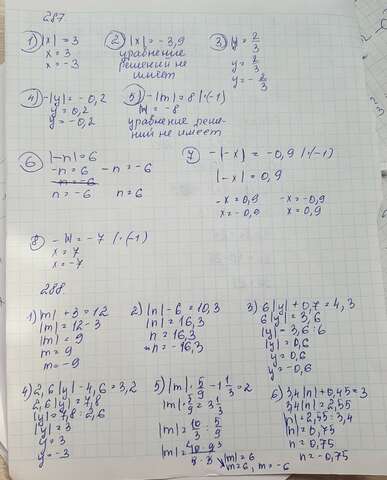 287
1) |x| = 3
x = 3
x = -3
2) |x| = -3,9
уравнение
решений не
имеет
3) |y| = 2/3
y = 2/3
y = -2/3
4) -|y| = -0,2
y = 0,2
y = -0,2
5) -|m| = 8 |·(-1)
|m| = -8
уравнение реше-
ний не имеет
6) |-n| = 6
-n = 6 -n = -6
n = -6 n = 6
7) -|-x| = -0,9 |·(-1)
|-x| = 0,9
-x = 0,9 -x = -0,9
x = -0,9 x = 0,9
8) -|x| = -7 |·(-1)
x = 7
x = -7
288.
1) |m| + 3 = 12
|m| = 12 - 3
|m| = 9
m = 9
m = -9
2) |n| - 6 = 10,3
|n| = 16,3
n = 16,3
n = -16,3
3) 6|y| + 0,7 = 4,3
6|y| = 3,6
|y| = 3,6 : 6
|y| = 0,6
y = 0,6
y = -0,6
4) 2,6|y| - 4,6 = 3,2
2,6|y| = 7,8
|y| = 7,8 : 2,6
|y| = 3
y = 3
y = -3
5) |m| · 5/9 - 1 1/3 = 2
|m| · 5/9 = 3 1/3
|m| = 10/3 : 5/9
|m| = 10·9/5·3
|m| = 6
m = 6, m = -6
6) 3,4|n| + 0,45 = 3
3,4|n| = 2,55
|n| = 2,55 : 3,4
|n| = 0,75
n = 0,75
n = -0,75